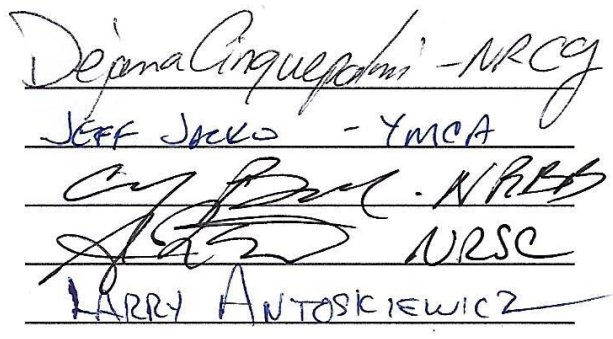 Dejana Cinquepalmi - NRCG
JEFF JACKO - YMCA
NRBB
NRSC
LARRY ANTOSKIEWICZ